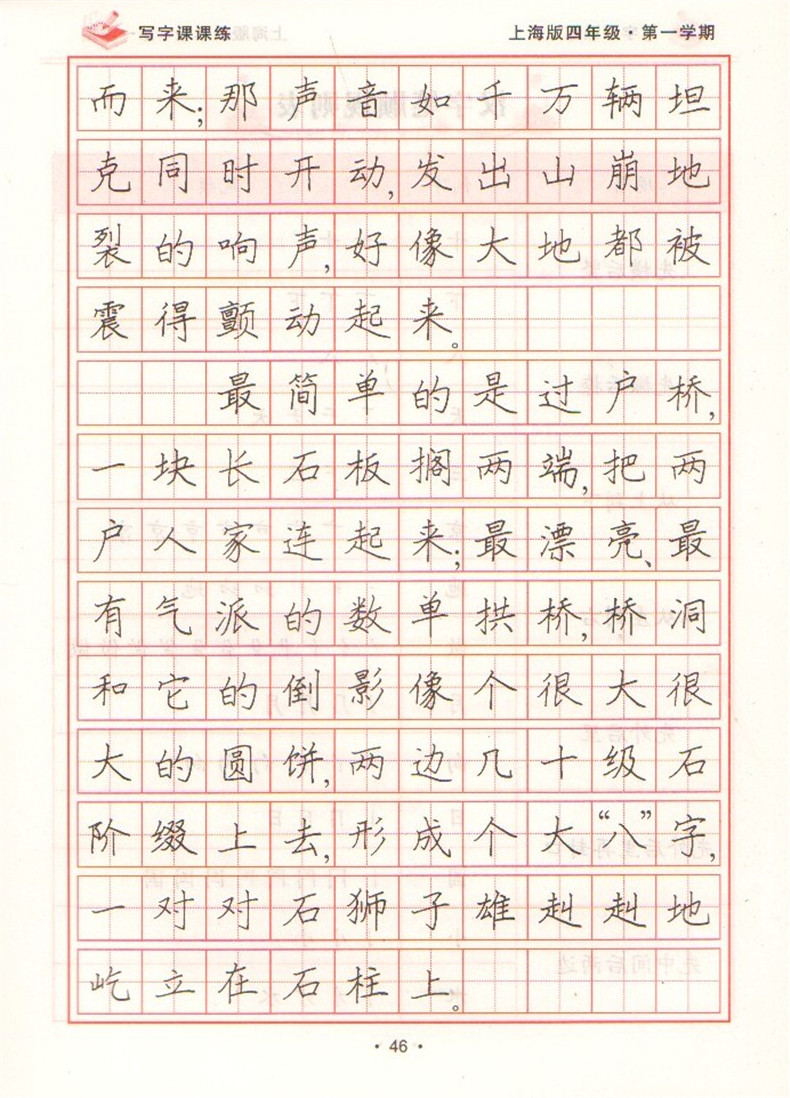 写字课课练 上海版四年级·第一学期
而来；那声音如千万辆坦
克同时开动，发出山崩地
裂的响声，好像大地都被
震得颤动起来。
最简单的是过户桥，
一块长石板搁两端，把两
户人家连起来；最漂亮、最
有气派的数单拱桥，桥洞
和它的倒影像个很大很
大的圆饼，两边几十级石
阶缀上去，形成个大“八”字，
一对对石狮子雄赳赳地
屹立在石柱上。
·46·